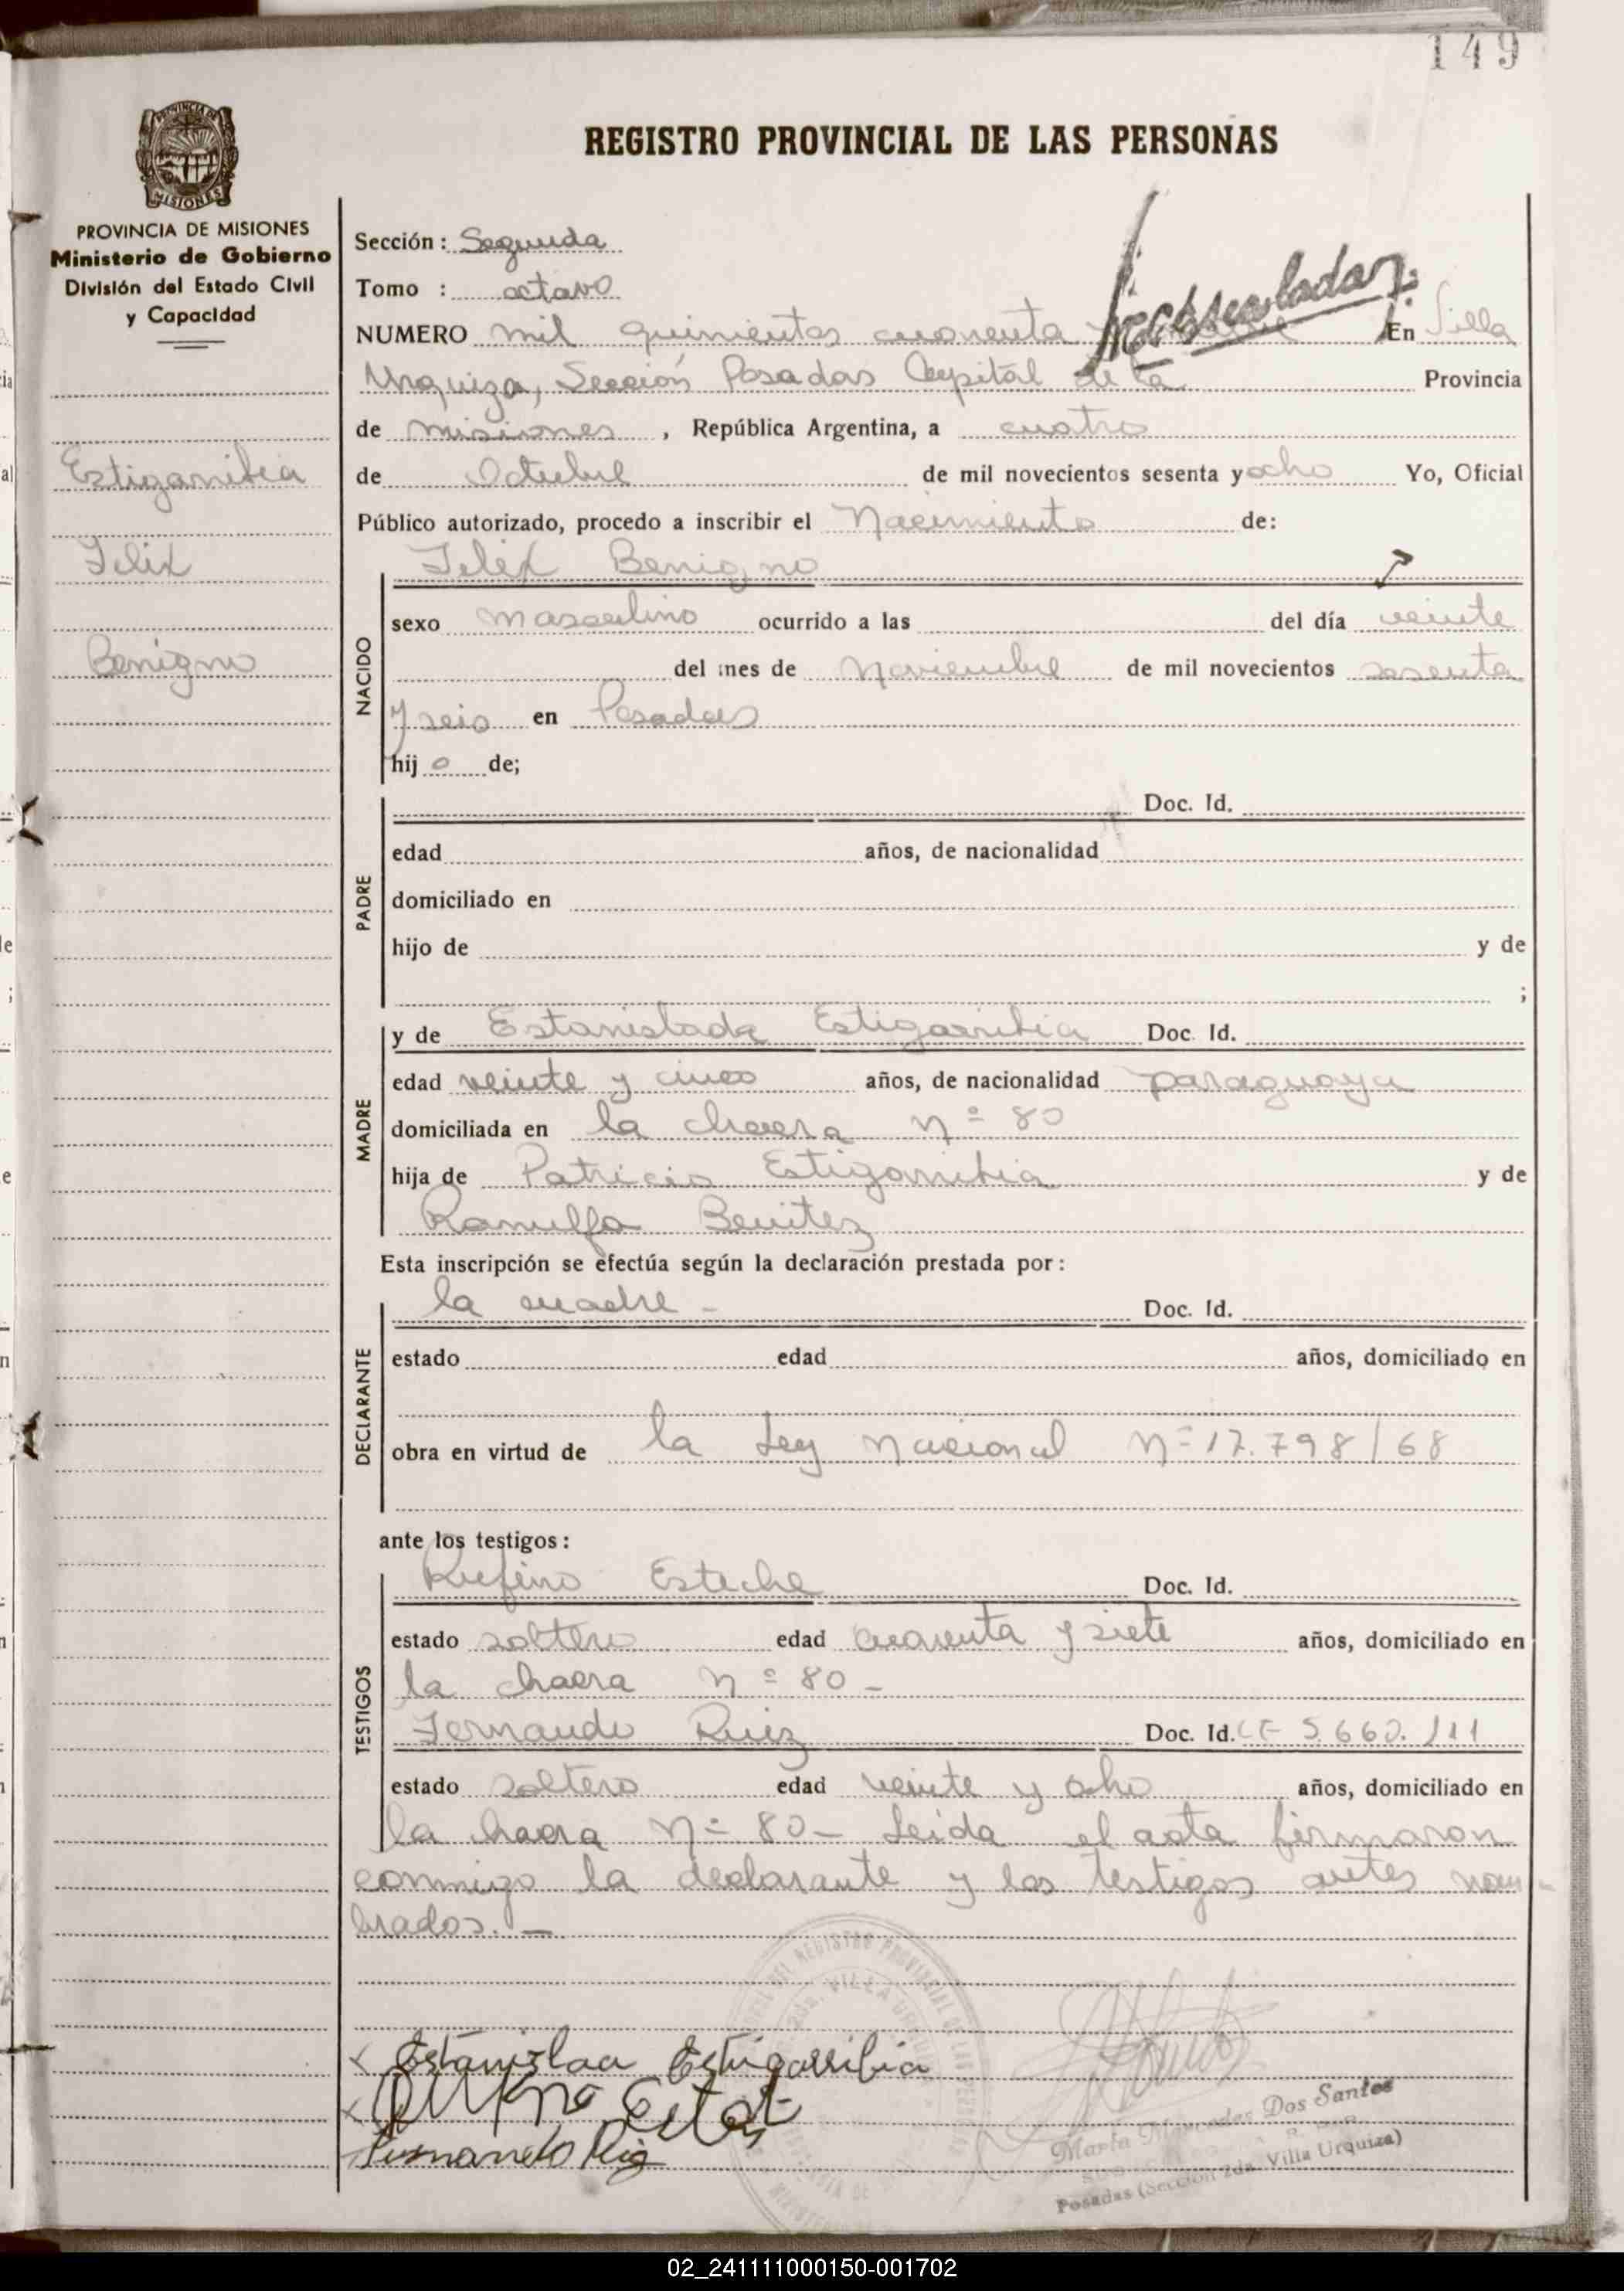 149
REGISTRO PROVINCIAL DE LAS PERSONAS
PROVINCIA DE MISIONES
Ministerio de Gobierno
División del Estado Civil
y Capacidad
Estigarribia
Felix
Benigno
Sección: Segunda
Tomo : octavo
NUMERO mil quinientos cuarenta En Villa
Urquiza, Sección Posadas Capital de la Provincia
de misiones, República Argentina, a cuatro
de Octubre de mil novecientos sesenta y ocho Yo, Oficial
Público autorizado, procedo a inscribir el Nacimiento de:
NACIDO
Felix Benigno
sexo masculino ocurrido a las del día veinte
del mes de Noviembre de mil novecientos sesenta
y seis en Posadas
hij o de;
PADRE
Doc. Id.
edad años, de nacionalidad
domiciliado en
hijo de y de
;
MADRE
y de Estanislada Estigarribia Doc. Id.
edad veinte y cinco años, de nacionalidad paraguaya
domiciliada en la chacra nº 80
hija de Patricio Estigarribia y de
Ranulfa Benitez
Esta inscripción se efectúa según la declaración prestada por:
DECLARANTE
la madre - Doc. Id.
estado edad años, domiciliado en
obra en virtud de la Ley Nacional Nº 17.798/68
ante los testigos:
TESTIGOS
Rufino Esteche Doc. Id.
estado soltero edad cuarenta y siete años, domiciliado en
la chacra nº 80 -
Fernando Ruiz Doc. Id.
estado soltero edad veinte y ocho años, domiciliado en
la chacra Nº 80 - Leida el acta firmaron
conmigo la declarante y los testigos antes nom-
brados. -
Estanizlaa Estigarribia
Fernando
Maria Mercedes Dos Santos
Posadas (Sección 2da. Villa Urquiza)
02_241111000150-001702